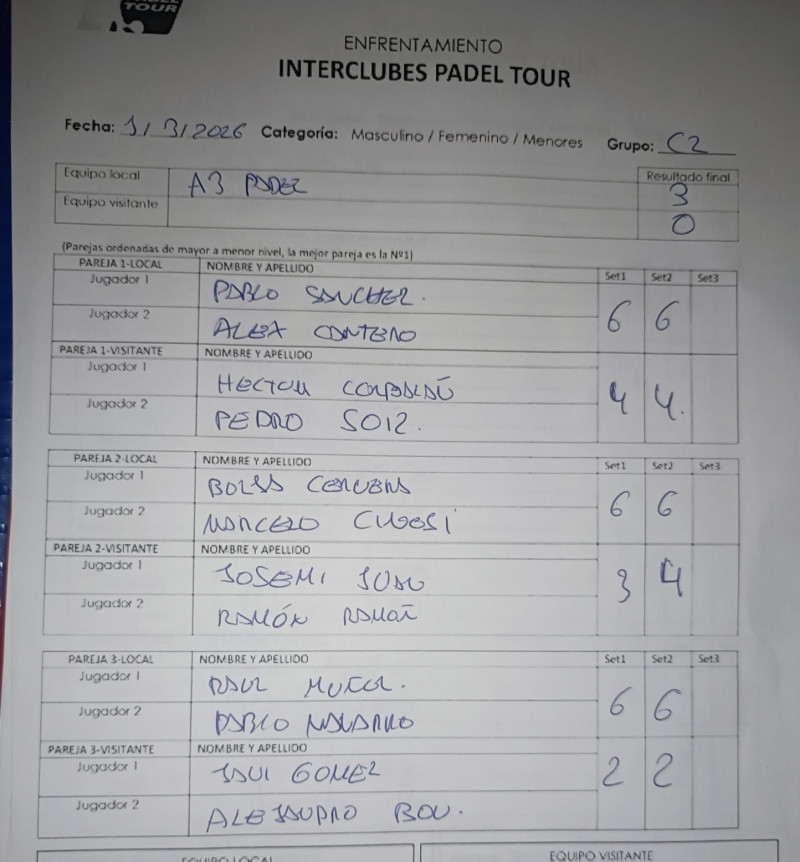 TOUR
ENFRENTAMIENTO
INTERCLUBES PADEL TOUR
Fecha: 1/3/2026 Categoría: Masculino / Femenino / Menores Grupo: C2
Equipo local A3 PADEL Resultado final 3
Equipo visitante 0
(Parejas ordenadas de mayor a menor nivel, la mejor pareja es la Nº1)
PAREJA 1-LOCAL NOMBRE Y APELLIDO Set1 Set2 Set3
Jugador 1 PABLO SANCHEZ. 6 6
Jugador 2 ALEX CONTERO
PAREJA 1-VISITANTE NOMBRE Y APELLIDO
Jugador 1 HECTOR 4 4.
Jugador 2 PEDRO
PAREJA 2-LOCAL NOMBRE Y APELLIDO Set1 Set2 Set3
Jugador 1 6 6
Jugador 2 MARCELO
PAREJA 2-VISITANTE NOMBRE Y APELLIDO
Jugador 1 JOSEMI 3 4
Jugador 2 RAMÓN
PAREJA 3-LOCAL NOMBRE Y APELLIDO Set1 Set2 Set3
Jugador 1 RAUL 6 6
Jugador 2 PABLO NAVARRO
PAREJA 3-VISITANTE NOMBRE Y APELLIDO
Jugador 1 JAVI GOMEZ 2 2
Jugador 2 ALEJANDRO BOU.
EQUIPO LOCAL EQUIPO VISITANTE